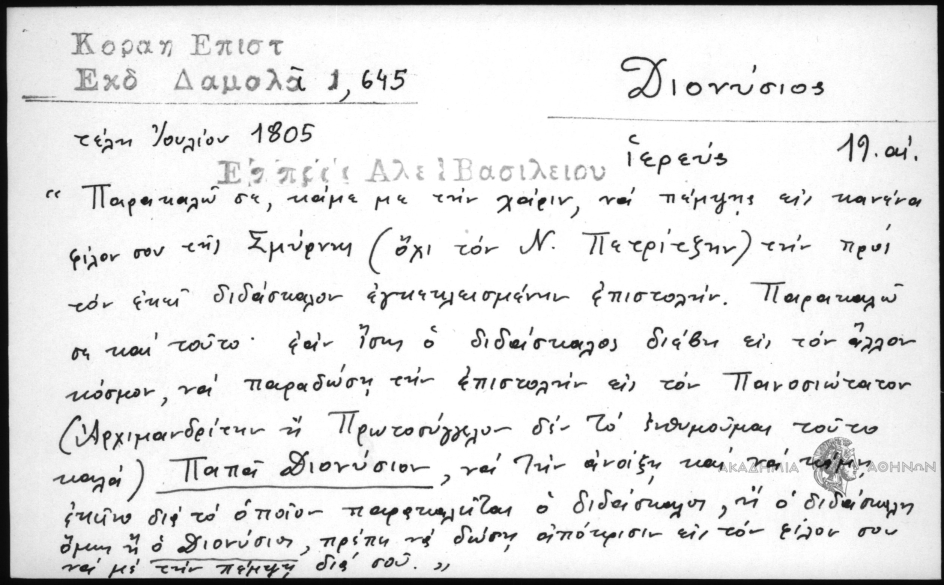 Κοραη Επιστ
Εκδ Δαμαλᾶ 1, 645
Διονύσιος
τέλη Ἰουλίου 1805
ἱερεύς 19. αἰ.
Επ πρὸς Αλεξ Βασιλειου
“ Παρακαλῶ σε, κάμε με τὴν χάριν, νά πέμψῃς εἰς κανένα
φίλον σου τῆς Σμύρνης (ὄχι τόν Ν. Πετρίτζην) τήν πρός
τόν ἐκεῖ διδάσκαλον ἐγκεκλεισμένην ἐπιστολήν. Παρακαλῶ
σε καί τοῦτο· ἐάν ἴσως ὁ διδάσκαλος διέβη εἰς τόν ἄλλον
κόσμον, νά παραδώσῃ τήν ἐπιστολήν εἰς τόν Πανοσιώτατον
(Ἀρχιμανδρίτην ἤ Πρωτοσύγγελον δέν τό ἐνθυμοῦμαι τοῦτο
καλά) Παπᾶ Διονύσιον, νά τήν ἀνοίξῃ καί νά κάμῃ
ἐκεῖνο διά τό ὁποῖον παρακαλεῖται ὁ διδάσκαλος, ἤ ὁ διδάσκαλος
ὅμως ἤ ὁ Διονύσιος, πρέπει νά δώσῃ ἀπόκρισιν εἰς τόν φίλον σου
νά μέ τήν πέμψῃ διά σοῦ. „
ΑΚΑΔΗΜΙΑ ΑΘΗΝΩΝ